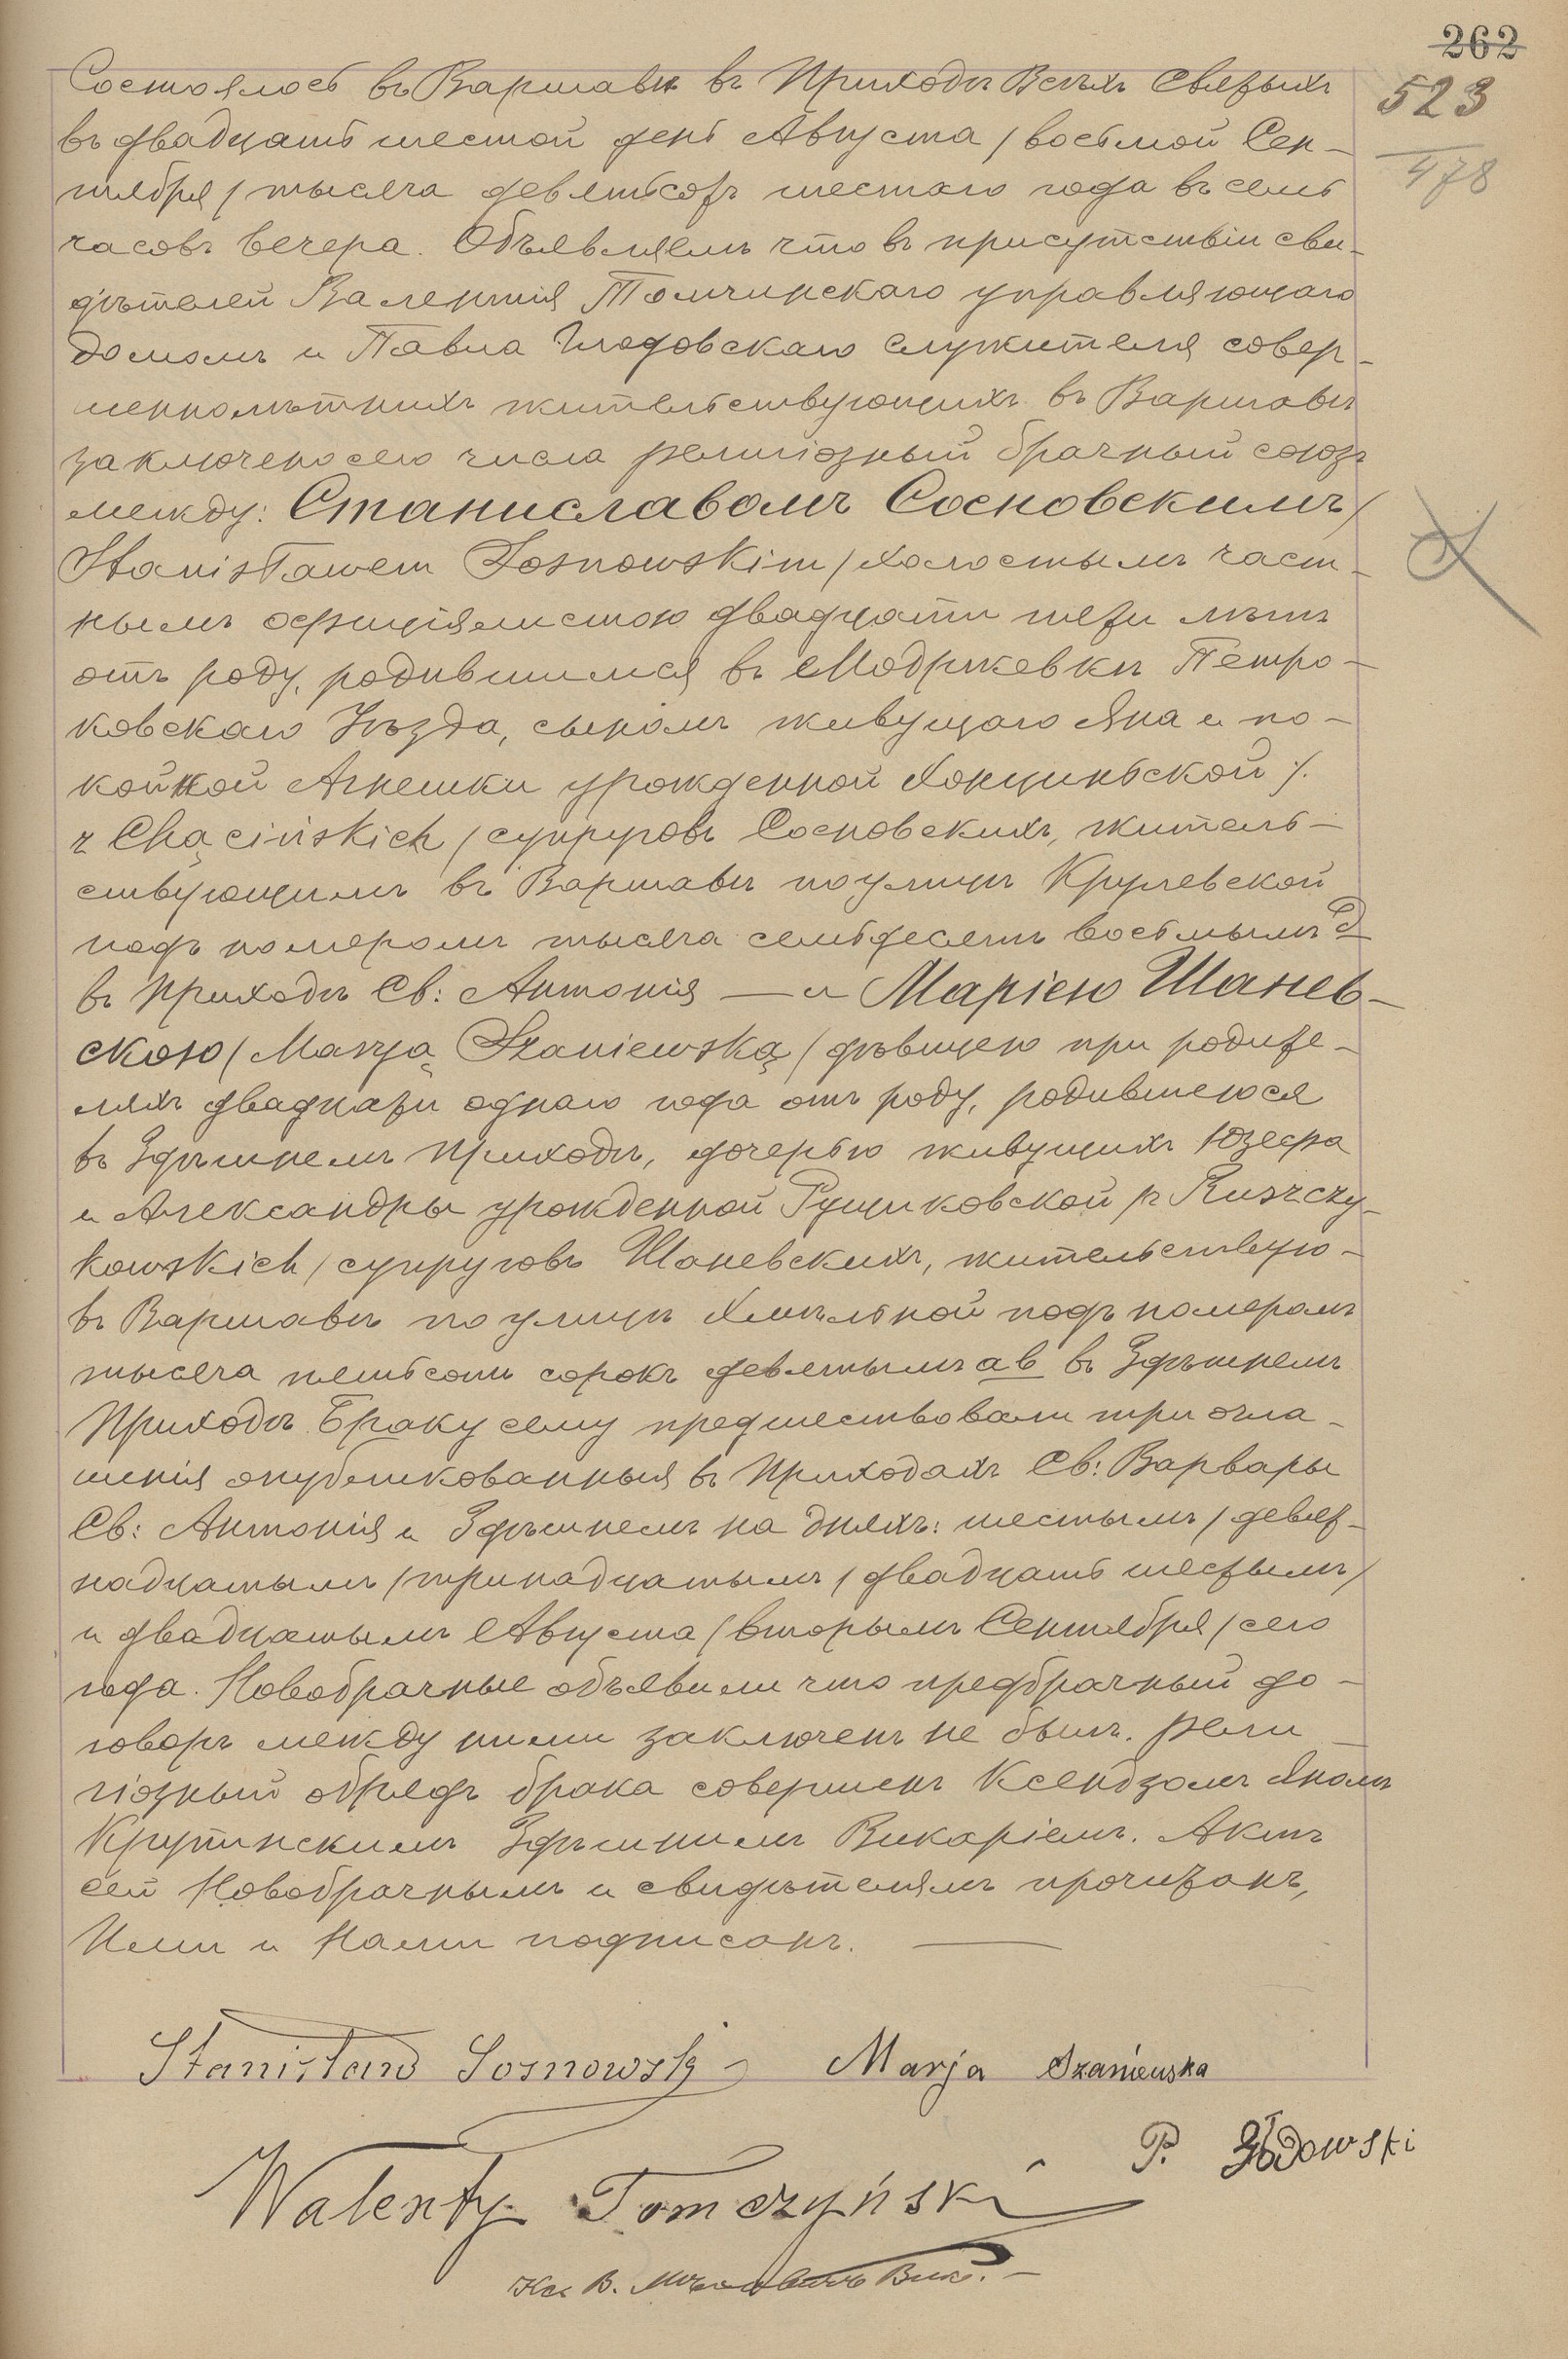 262
523
478
Состоялось въ Варшавѣ въ Приходѣ Всѣхъ Святыхъ
въ двадцать шестой день Августа / восьмой Сен-
тября / тысяча девятьсотъ шестаго года въ семь
часовъ вечера. Объявляемъ что въ присутствіи сви-
дѣтелей Валентія Томчинскаго управляющаго
домомъ и Павла Глодовскаго служителя совер-
шеннолѣтнихъ жительствующихъ въ Варшавѣ
заключено сего числа религіозный брачный союзъ
между: Станиславомъ Сосновскимъ /
Stanisławem Sosnowskim / холостымъ част-
нымъ офиціялистою двадцати пяти лѣтъ
отъ роду, родившимся въ Модржевкѣ Петро-
ковскаго Уѣзда, сыномъ живущаго Яна и по-
койной Агнешки урожденной Хонциньской /.
z Chącińskich / супруговъ Сосновскихъ, житель-
ствующимъ въ Варшавѣ по улицѣ
подъ номеромъ тысяча семьдесятъ восьмымъ
въ Приходѣ Св: Антонія — и Маріею Шанев-
скою / Maryą Szaniewską / дѣвицею при родите-
ляхъ двадцати одного года отъ роду, родившеюся
въ Здѣшнемъ Приходѣ, дочерью живущихъ Юзефа
и Александры урожденной Рущиковской / z Ruszczy-
kowskich / супруговъ Шаневскихъ, жительствую-
въ Варшавѣ по улицѣ Хмѣльной подъ номеромъ
тысяча пятьсотъ сорокъ девятымъ ав въ Здѣшнемъ
Приходѣ Браку сему предшествовали три огла-
шенія опубликованныя въ Приходахъ Св: Варвары
Св: Антонія и Здѣшнемъ на дняхъ: шестымъ / девят-
надцатымъ / тринадцатымъ / двадцать шестымъ /
и двадцатымъ Августа / вторымъ Сентября / сего
года. Новобрачные объявили что предбрачный до-
говоръ между ними заключенъ не былъ. Рели-
гіозный обрядъ брака совершенъ Ксендзомъ Яномъ
Крупинскимъ Здѣшнимъ Викаріемъ. Актъ
сей Новобрачнымъ и свидѣтелямъ прочитанъ,
Ими и Нами подписанъ. —
Stanisław Sosnowski Marja Szaniewska
P. Głodowski
Walenty Tomczyński
Кс. В. Вик. —